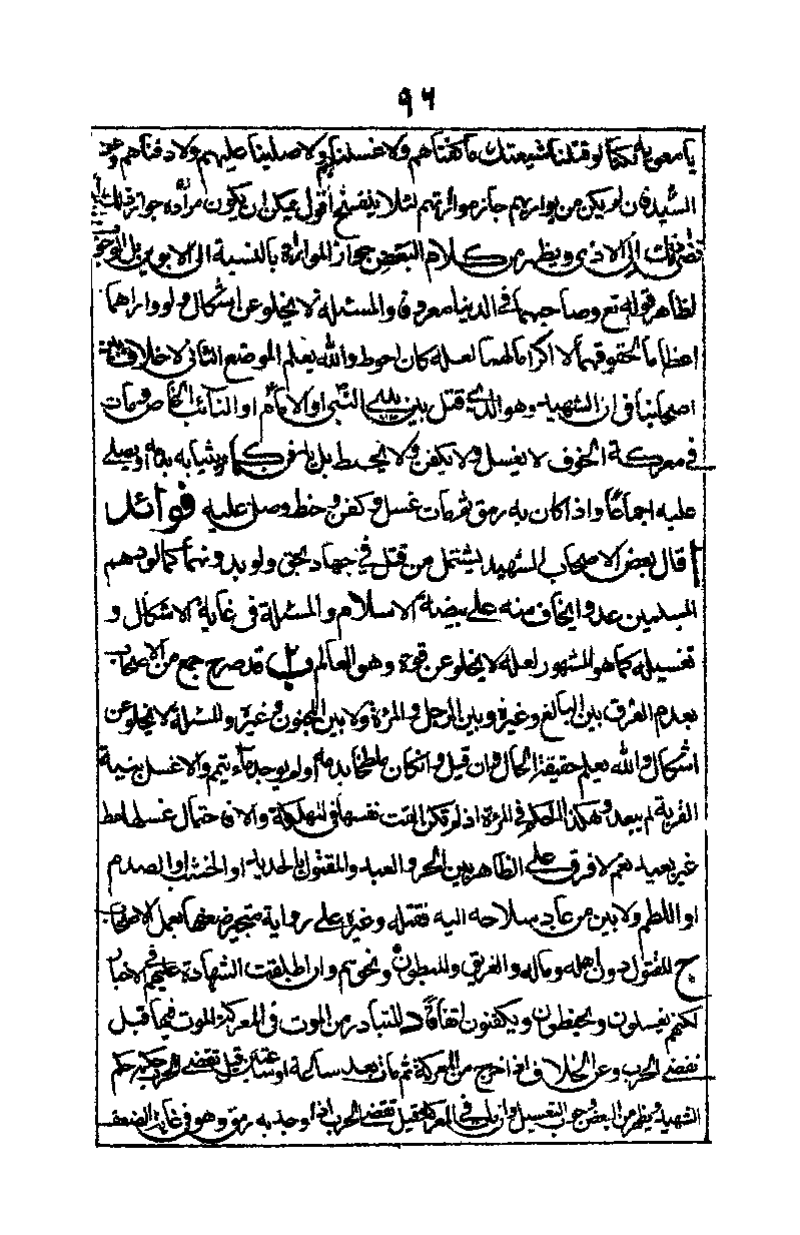 ٩٦
يا معوية لكنّا لو قتلنا شيعتك ما كفناهم ولا غسلناهم ولا صلينا عليهم ولا دفناهم وعن
الشهيد فان لم يكن من يواريهم جاز مواراتهم لئلا ينفسخ أقول يمكن ان يكون مراده جواز
الى الاذى ويظهر من كلام البعض جواز المواراة بالنسبة الى الابوين بل الزوجة
لظاهر قوله تع وصاحبهما في الدنيا معروفا والمسئلة لا يخلو عن اشكال ولو واراهما
اعظاما لحقوقهما لا اكراما لهما لعله كان احوط والله يعلم الموضع الثاني لا خلاف بين
اصحابنا في ان الشهيد وهو الذي قتل بين يدي النبي او الامام او النائب الخاص ومات
في معركة الخوف لا يغسل ولا يكفن ولا يحنط بل يدفن كما هو بثيابه بدمائه ويصلي
عليه اجماعًا واذا كان به رمق ثم مات غسل وكفن وحنط وصلى عليه فوائد
ا قال بعض الاصحاب الشهيد يشتمل من قتل في جهاد الحق ولو بدونهما كما لو دهم
المسلمين عدو ايخاف منه على بيضة الاسلام والمسئلة في غاية الاشكال و
تغسيله كما هو المشهور لعله لا يخلو عن قوة وهو العالم ب قد صرح جمع من الاصحاب
بعدم الفرق بين البالغ وغيره وبين الرجل والمرئة ولا بين المجنون وغيره والمسئلة لا يخلو عن
اشكال والله يعلم حقيقة الحال وان قيل وان كان ملطخا بدمه او لم يوجد ماء يتيمم والا غسل بنية
القربة لم يبعد وهكذا الحكم في المرئة اذ لم تكن القت نفسها في التهلكة والا فاحتمال غسلها
غير بعيد نعم لا فرق على الظاهر بين الحر والعبد والمقتول بالحديد او الخشب او الصدم
او اللطم ولا بين من عاد سلاحه اليه فقتله وغيره على رواية منجبر ضعفها بعمل الاصحاب
ج المقتول دون اهله وماله والغريق والمبطون ونحوهم وان اطلقت الشهادة عليهم في الاخبار
لكنهم يغسلون ويحنطون ويكفنون اتفاقًا د المتبادر من الموت في المعركة الموت فيها قبل
تقضي الحرب وعن الخلاف اذا خرج من المعركة ثم مات بعد ساعة او ساعتين قبل تقضي الحرب حكمه حكم
الشهيد ويظهر من البعض وجوب التغسيل وان مات في المعركة قبل تقضي الحرب اذا وجد به رمق وهو في غاية الضعف